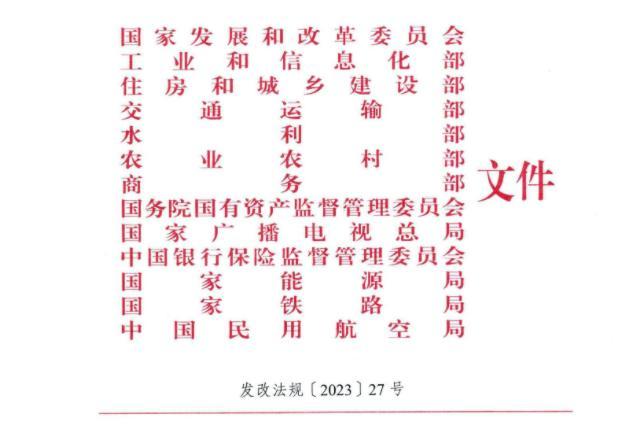 国家发展和改革委员会
工业和信息化部
住房和城乡建设部
交通运输部
水利部
农业农村部
商务部
国务院国有资产监督管理委员会
国家广播电视总局
中国银行保险监督管理委员会
国家能源局
国家铁路局
中国民用航空局
文件
发改法规〔2023〕27号